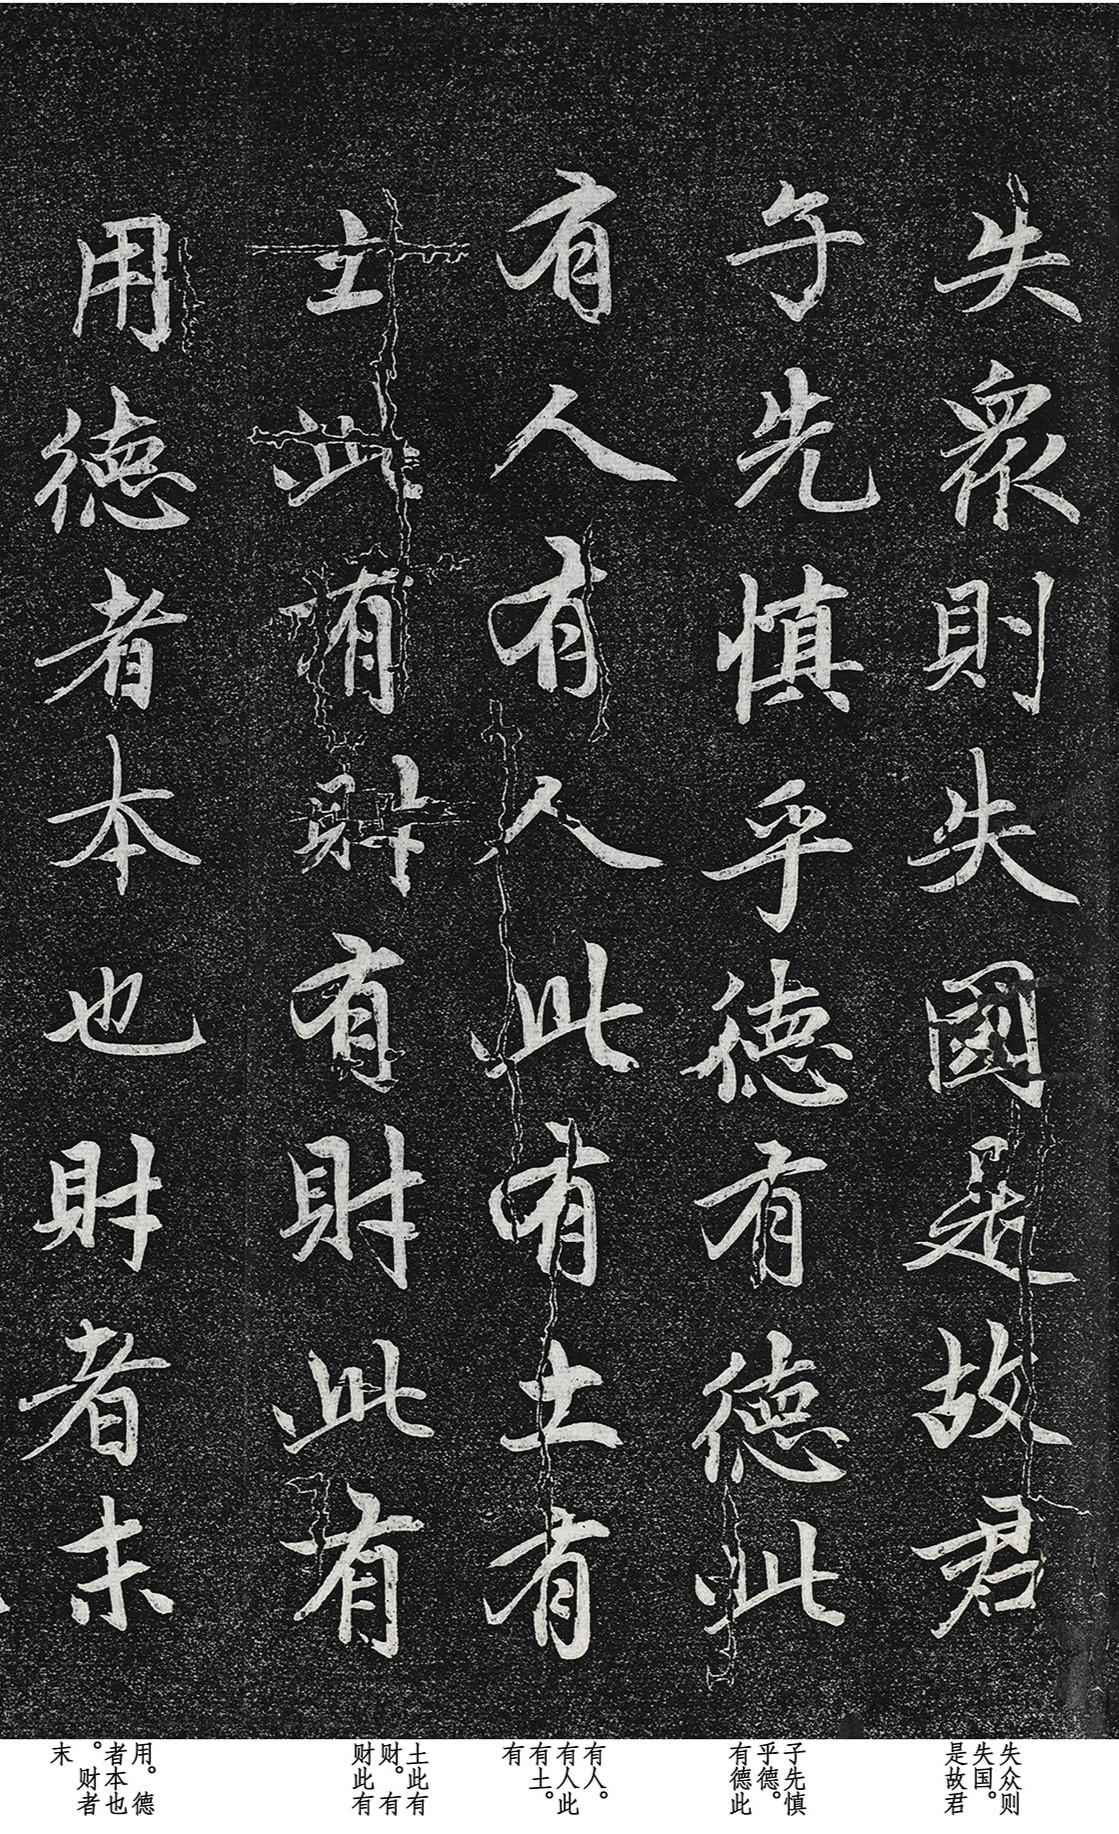 失衆則失國是故君
子先慎乎德有德此
有人有人此有土有
土此有財有財此有
用德者本也財者末
失众则
失国。
是故君
子先慎
乎德。
有德此
有人。
有人此
有土。
有
土此有
财。有
财此有
用。德
者本也
。财者
末